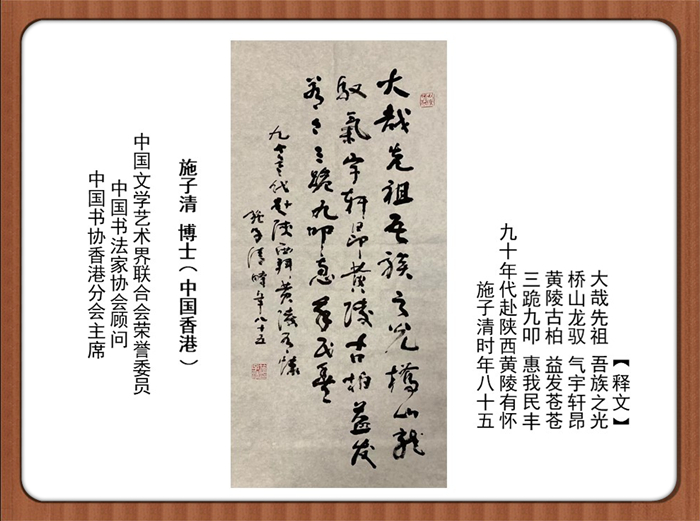 【释文】
大哉先祖 吾族之光
桥山龙驭 气宇轩昂
黄陵古柏 益发苍苍
三跪九叩 惠我民丰
九十年代赴陕西黄陵有怀
施子清时年八十五
大哉先祖吾族之光橋山龍
馭氣宇軒昂黄陵古柏益发
苍々三跪九叩惠我民豐
九十年代赴陕西拜黄陵有懷
施子清時年八十五
施子清 博士（中国香港）
中国文学艺术界联合会荣誉委员
中国书法家协会顾问
中国书协香港分会主席